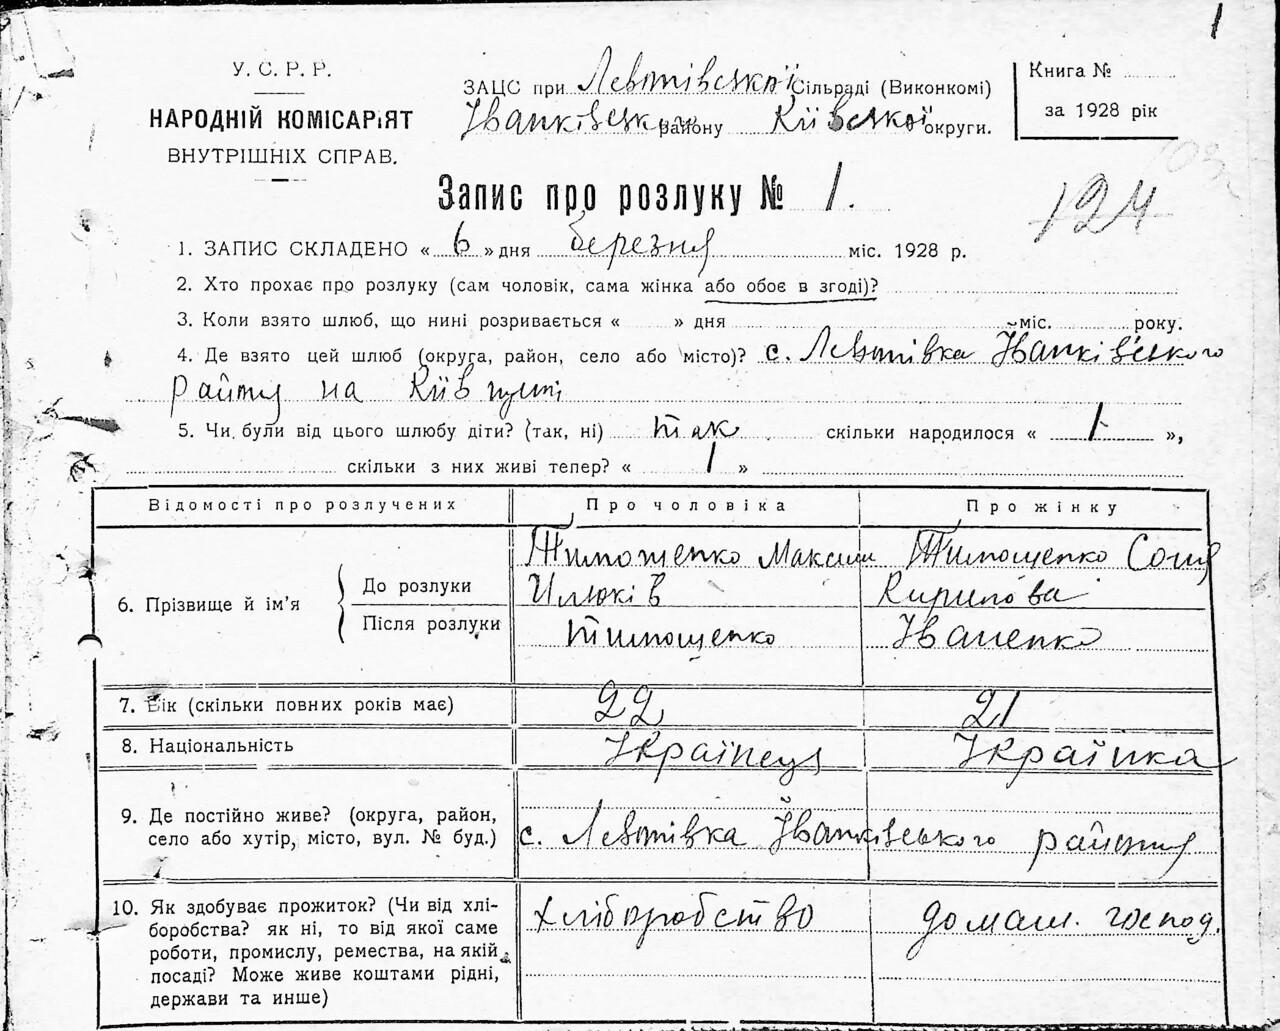 1
У. С. Р. Р.
НАРОДНІЙ КОМІСАРІЯТ
ВНУТРІШНІХ СПРАВ.
ЗАЦС при Левтівської Сільраді (Виконкомі)
Іванківського району Київської округи.
Книга №
за 1928 рік
Запис про розлуку № 1.
124
1. ЗАПИС СКЛАДЕНО « 6 » дня березня міс. 1928 р.
2. Хто прохає про розлуку (сам чоловік, сама жінка або обоє в згоді)?
3. Коли взято шлюб, що нині розривається « » дня міс. року.
4. Де взято цей шлюб (округа, район, село або місто)? с. Левтівка Іванківського
району на Київщині
5. Чи були від цього шлюбу діти? (так, ні) так скільки народилося « 1 »,
скільки з них живі тепер? « 1 »
Відомості про розлучених Про чоловіка Про жінку
6. Прізвище й ім'я
До розлуки
Тимошенко Максим
Тимощенко Соня
Кирилова
Після розлуки Тимощенко Іваненко
7. Вік (скільки повних років має) 22 21
8. Національність Українець Українка
9. Де постійно живе? (округа, район,
село або хутір, місто, вул. № буд.) с. Левтівка Іванківського району
10. Як здобуває прожиток? (Чи від хлі-
боробства? як ні, то від якої саме
роботи, промислу, ремества, на якій
посаді? Може живе коштами рідні,
держави та инше)
хліборобство домаш. господ.